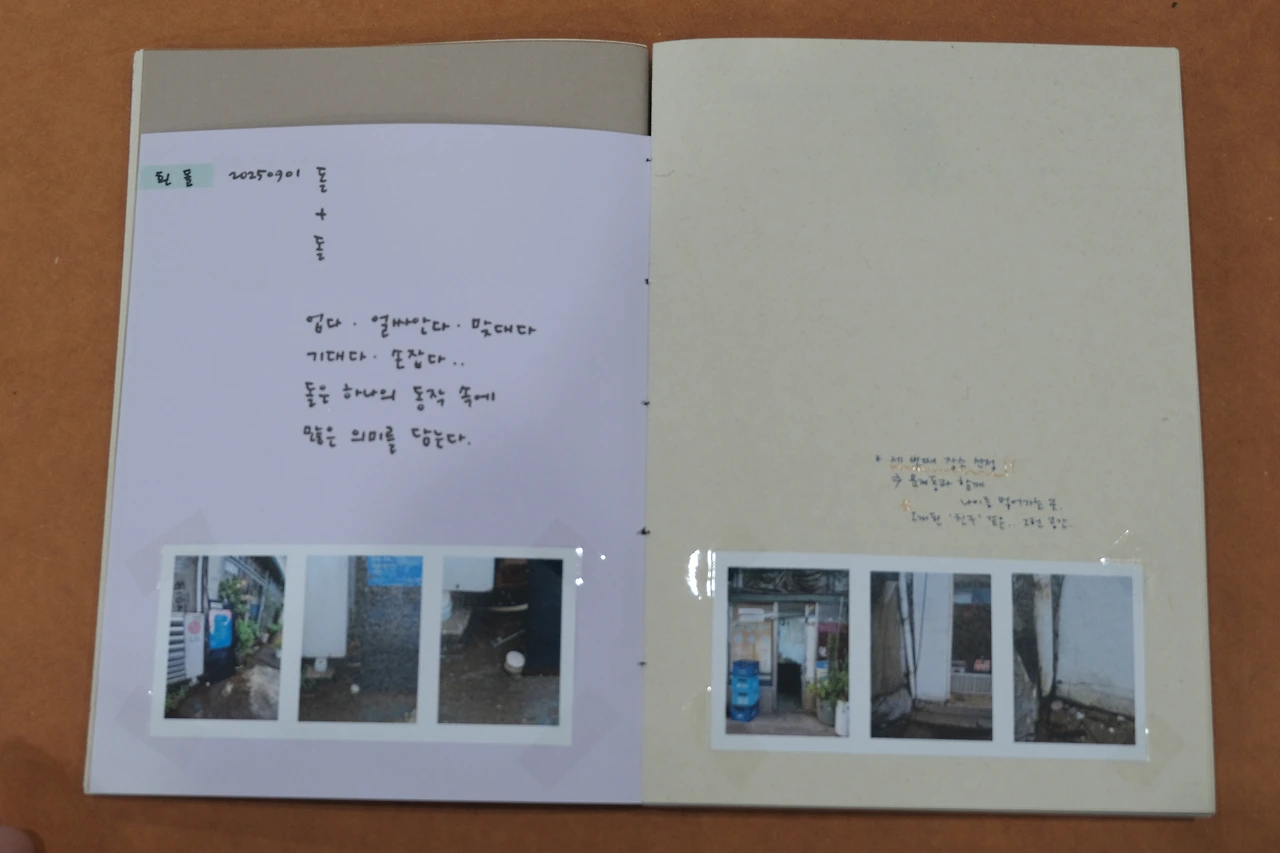 흰 돌 20250901 돌
+
돌
업다 · 얼싸안다 · 맞대다
기대다 · 손잡다..
돌은 하나의 동작 속에
많은 의미를 담는다.
* 세 번째 장소 선정 !!
⇒ 문래동과 함께
나이를 먹어가는 곳.
오래된 '친구' 같은.. 그런 공간.